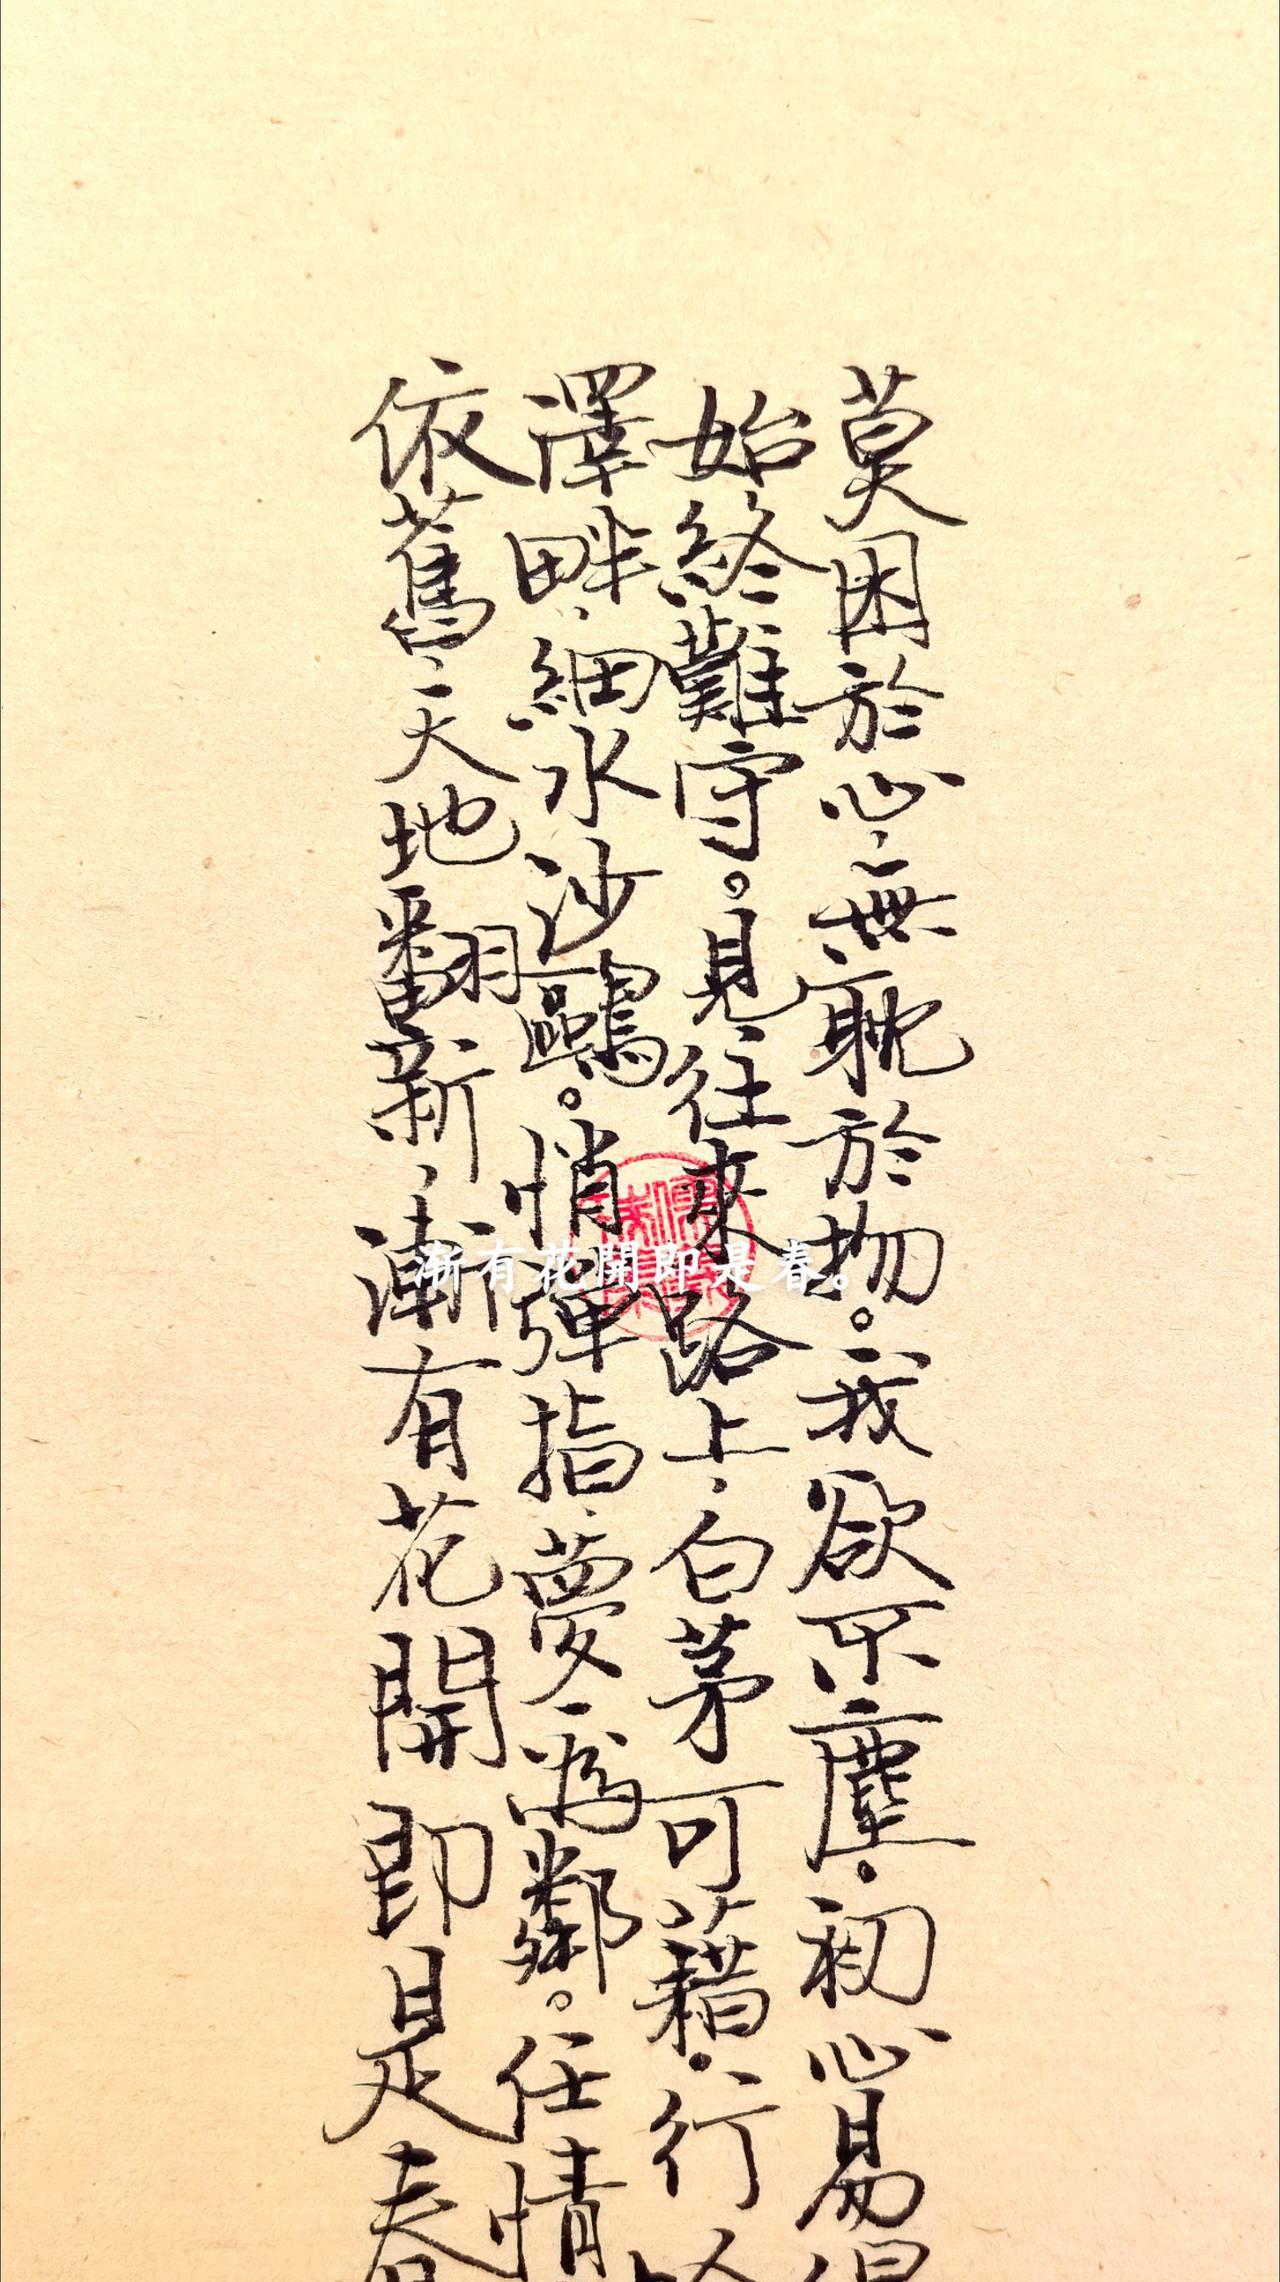 莫困於心、無耽於物。我欲不塵，初心易得
始終難守。見往來路上、白茅可藉，行
澤畔、細水沙鷗。悄彈指、夢為鄰。任情
依舊、天地翻新，漸有花開即是春
漸有花開即是春。